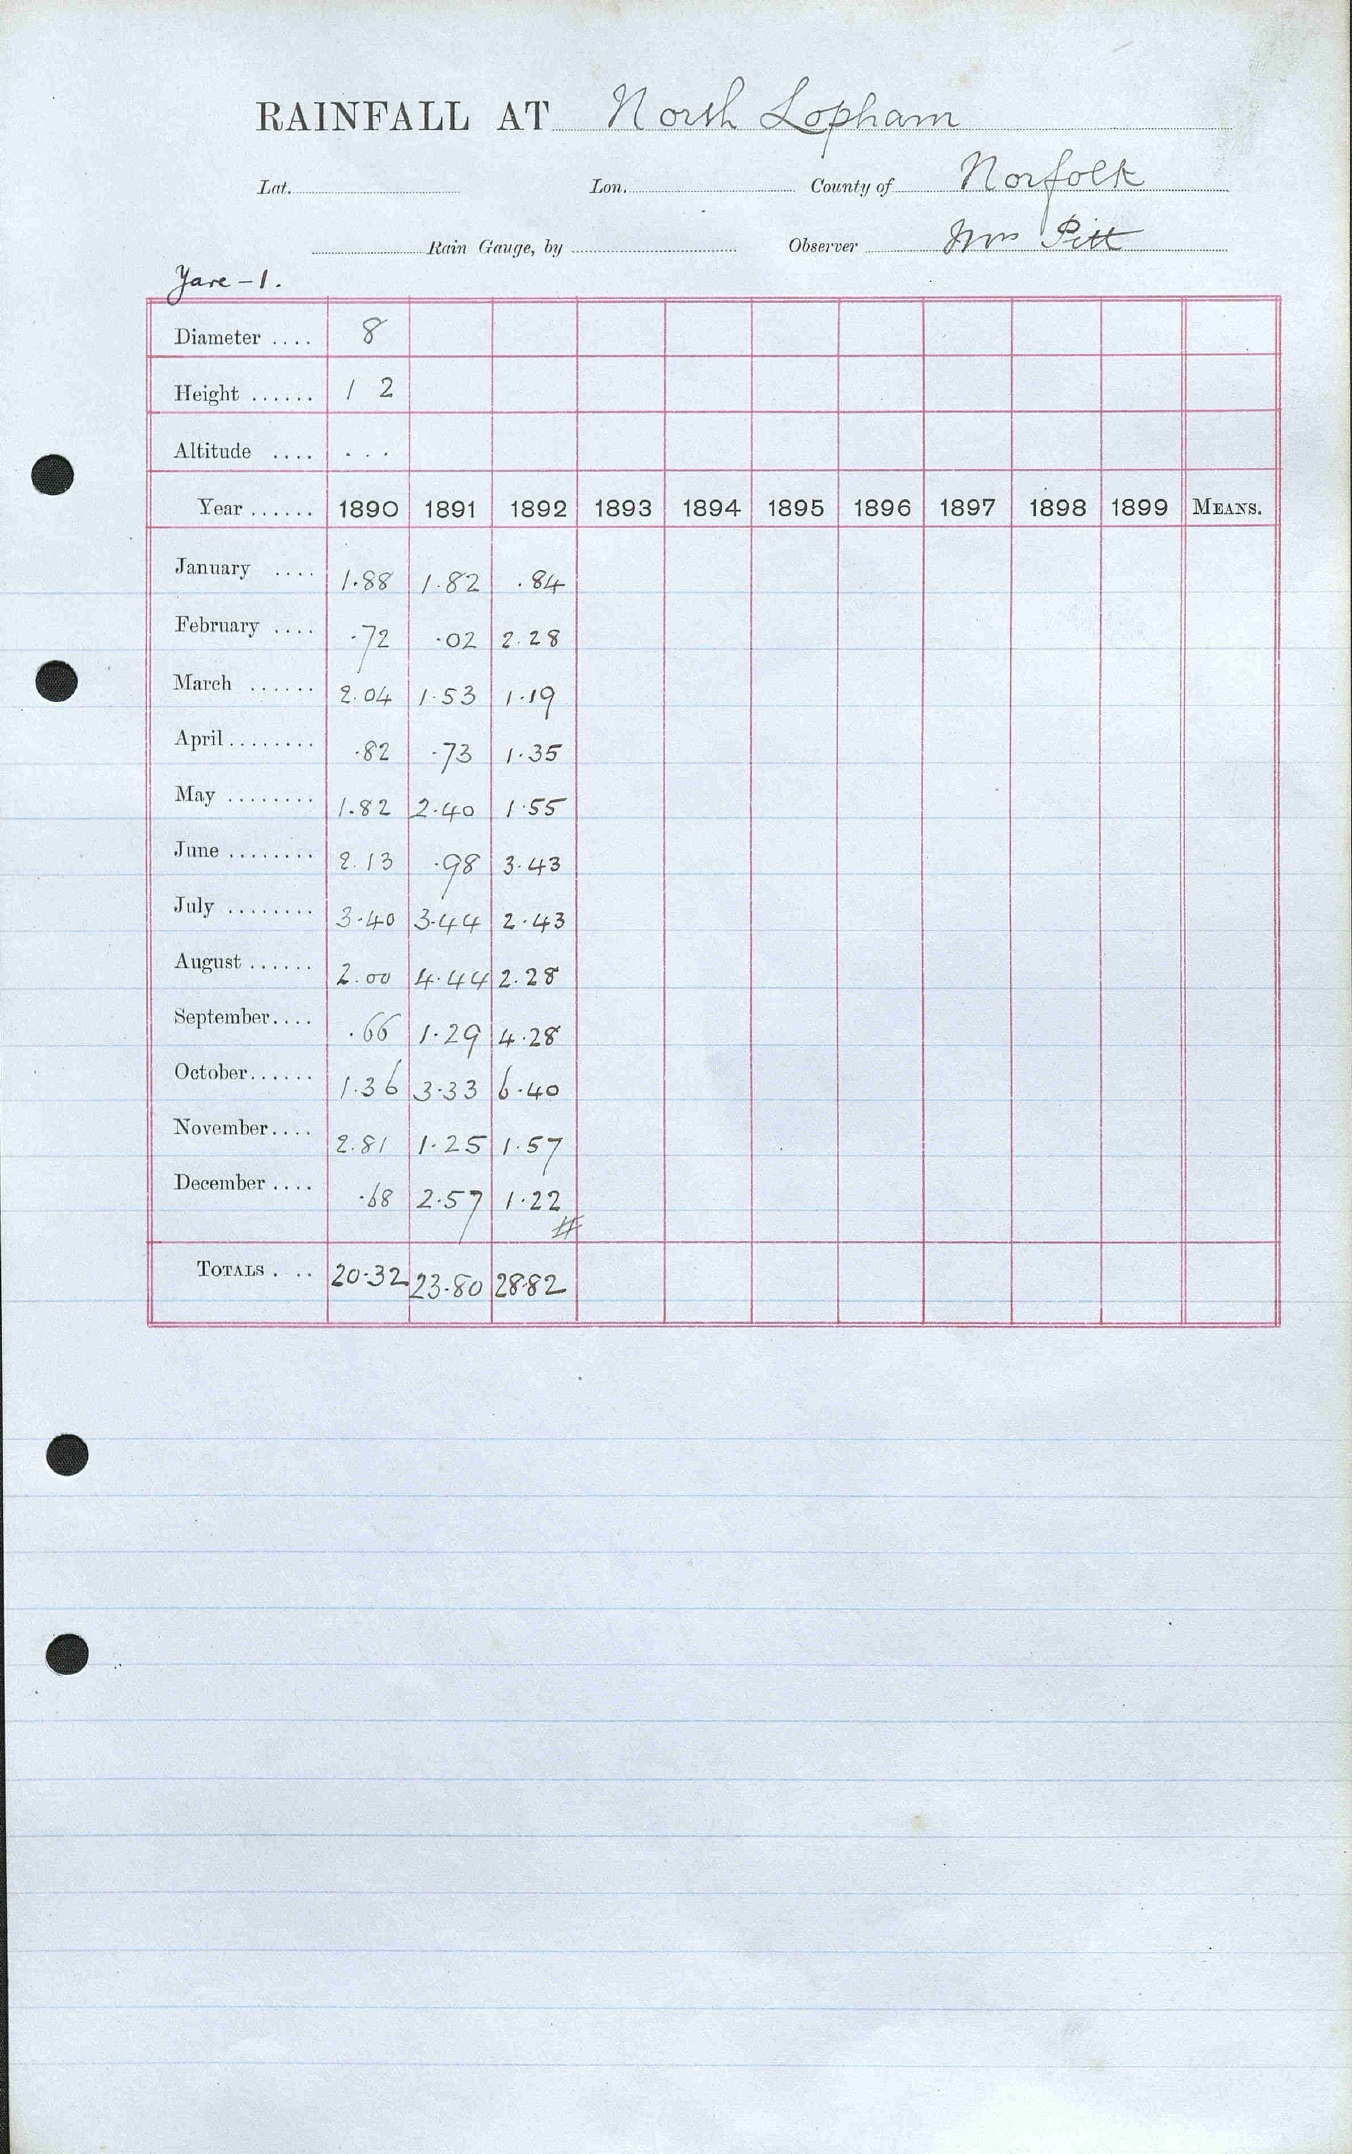 RAINFALL AT North Lopham
Lat. Lon. County of Norfolk
Rain Gauge, by Observer Mrs Pitt
Yare - 1.
Diameter .... 8
Height ...... 1 2
Altitude .... . . .
Year ...... 1890 1891 1892 1893 1894 1895 1896 1897 1898 1899 MEANS.
January .... 1.88 1.82 .84
February .... .72 .02 2.28
March ...... 2.04 1.53 1.19
April ........ .82 .73 1.35
May ........ 1.82 2.40 1.55
June ........ 2.13 .98 3.43
July ........ 3.40 3.44 2.43
August ...... 2.00 4.44 2.28
September.... .66 1.29 4.28
October...... 1.36 3.33 6.40
November.... 2.81 1.25 1.57
December .... .68 2.57 1.22
#
TOTALS . .. 20.32 23.80 28.82